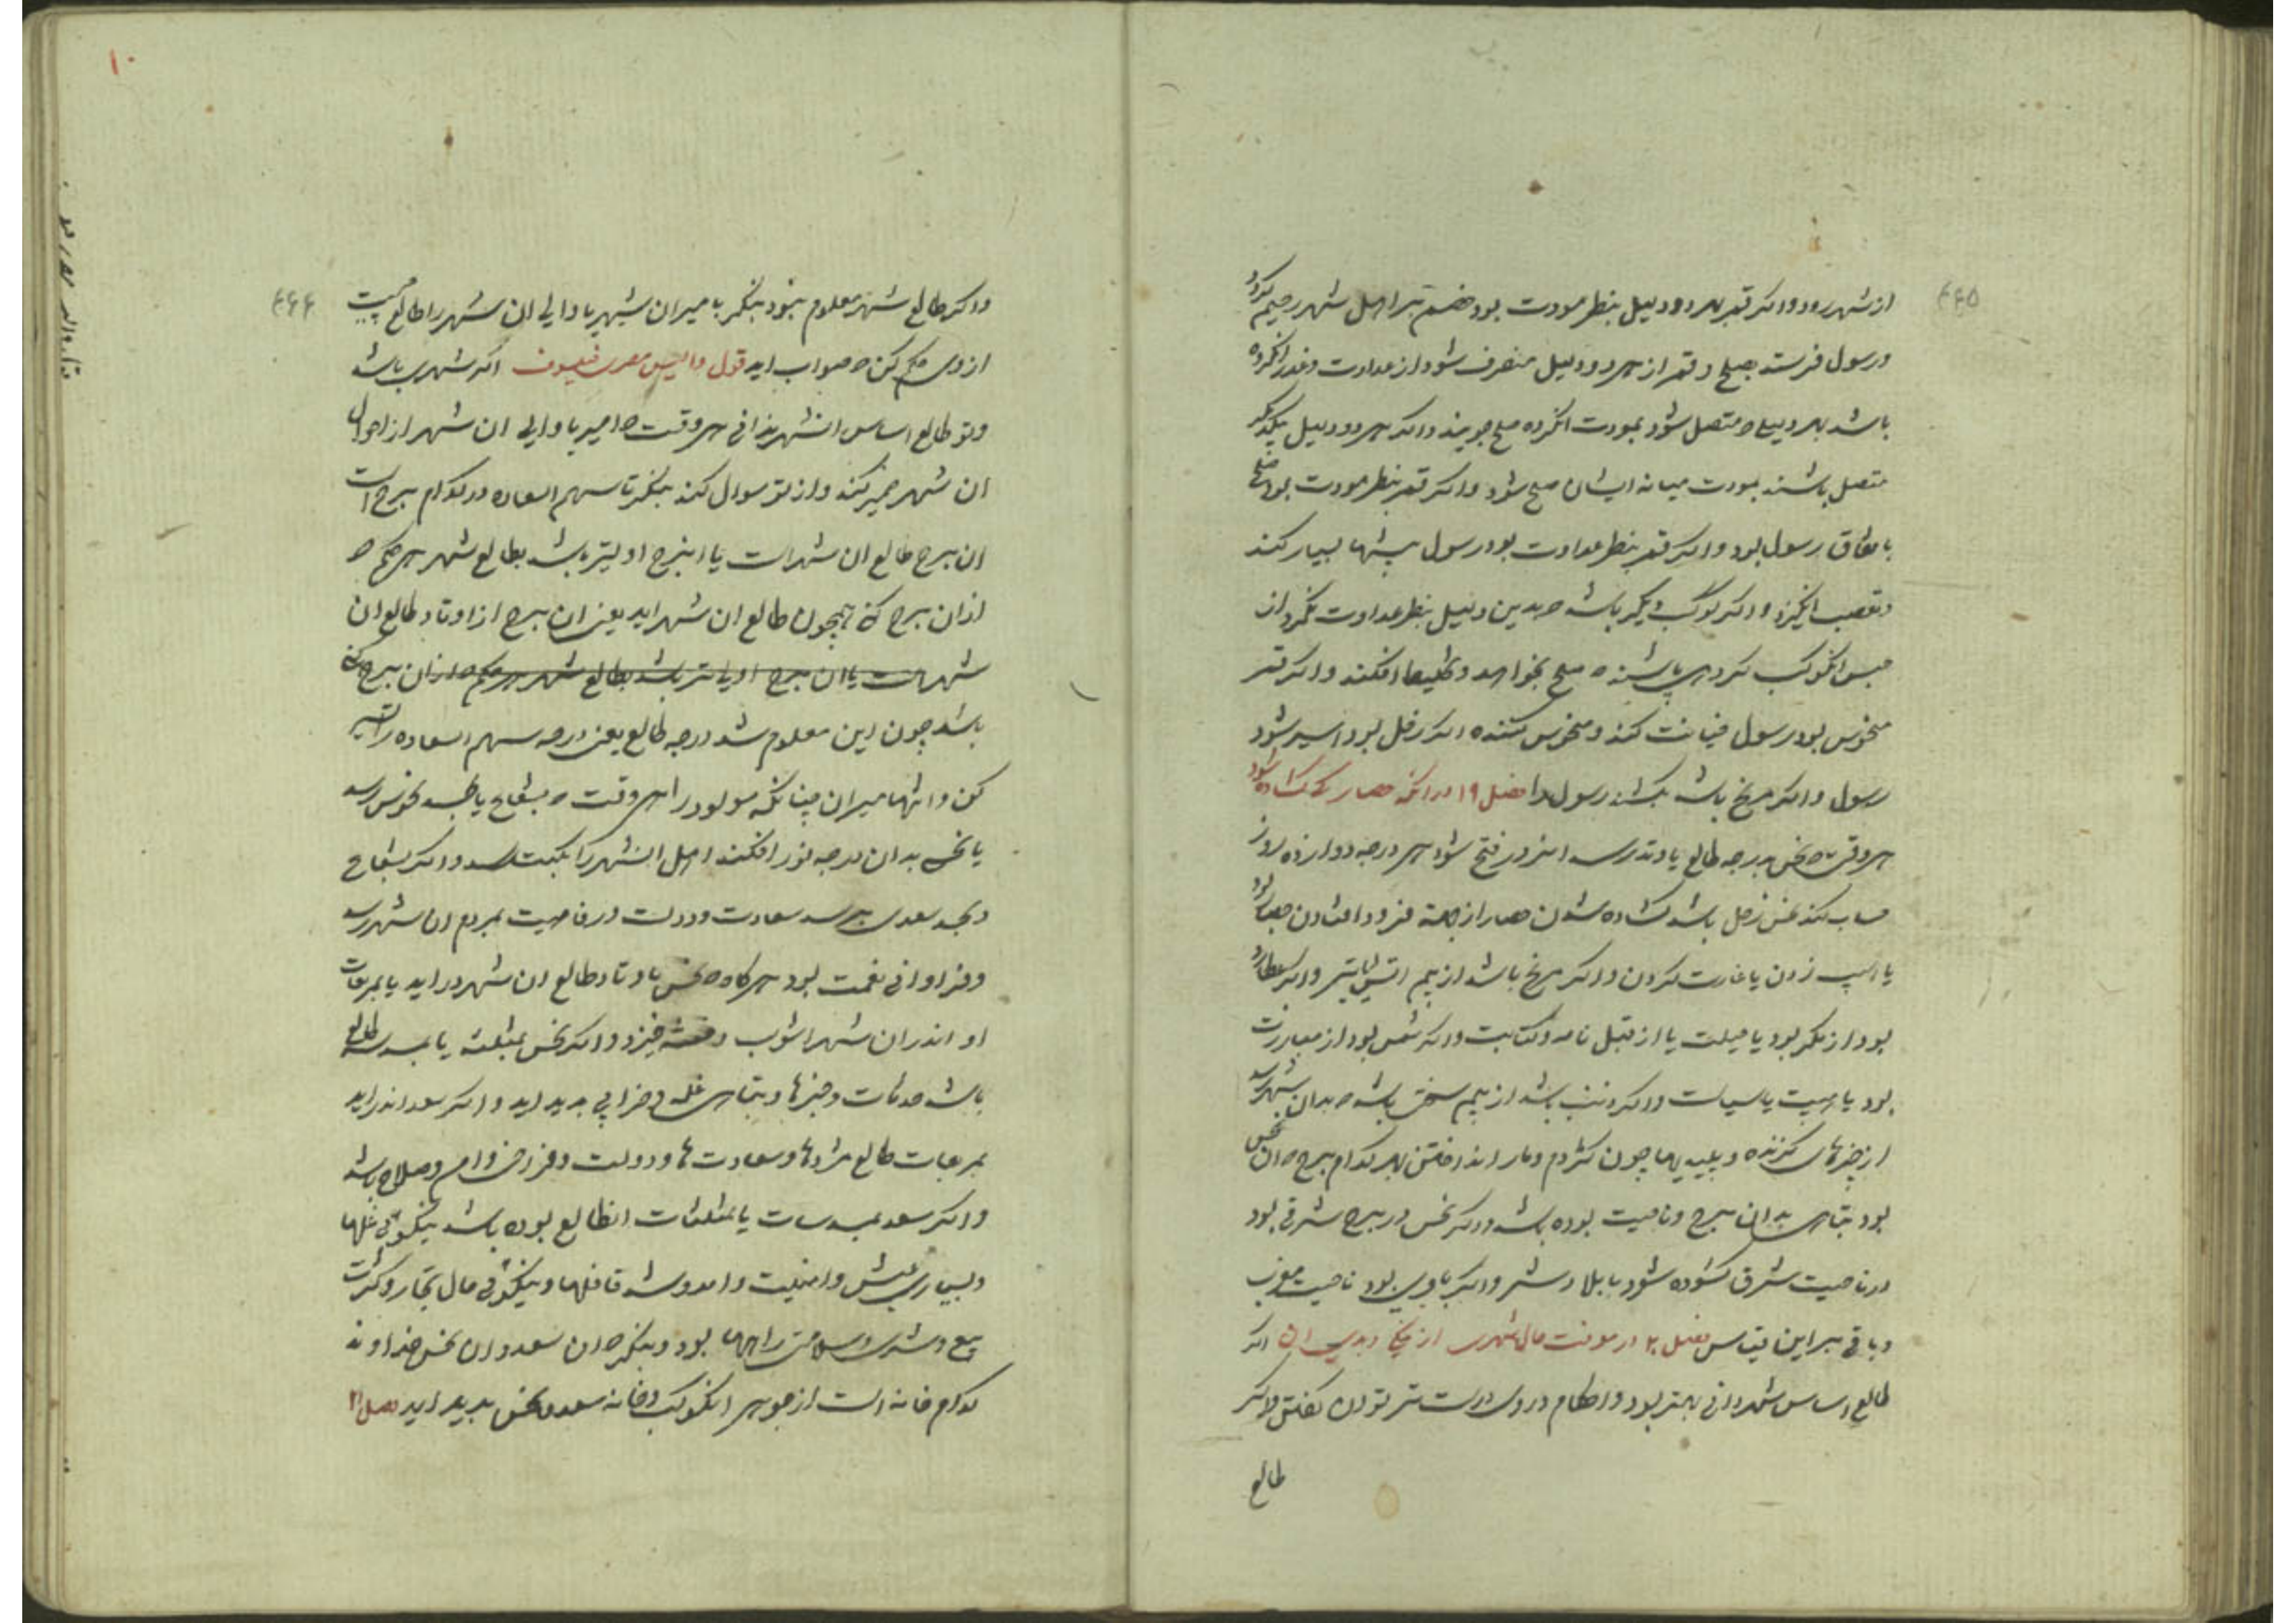 ۶۶۵
از شهر رود واکر قمر بهر دو دلیل بنظر مودت بود خصم بر اهل شهر رحیم کردد
ورسول فرستد بصلح وقمر از هر دو دلیل منصرف شود از عداوت
باشد بهر دلیلی که متصل شود بمودت انکروه صلح جویند واکر هر دو دلیل یکدیکر
متصل باشند بمودت میانه ایشان صلح شود واکر قمر بنظر مودت بود صلح
باتفاق رسول بود واکر قمر بنظر عداوت بود رسول بسیار کند
وتعصب انکیزد واکر کوکب دیکر باشد که بدین دلیل بنظر عداوت نکرد از
جنس انکوکب کروهی باشند که صلح نخواهند وتخلیط افکنند واکر قمر
منحوس بود رسول خیانت کند ومنحوس کننده اکر زحل بود اسیر شود
رسول واکر مریخ باشد بکشند رسول را فصل ۱۹ در انکه حصار کی کشاده شود
هر وقتی که نحس بدرجه طالع یا وتد رسد انروز فتح شود هر درجه دوازده روز
حساب کند نحس زحل باشد کشاده شدن حصار از جهة فرود افتادن حصار بود
یا اسپ زدن یا غارت کردن واکر مریخ باشد از بیم اتش یا تیر واکر عطارد
بود از مکر بود یا حیلت یا از قبل نامه وکتابت واکر شمس بود از مبارزت
بود یا هیبت یا سیاست واکر ذنب باشد از بیم سختی باشد که بدان شهر رسد
از چیزهای کزنده وپلیدیها چون کژدم ومار انداختن بهر کدام برج که ان نحس
بود تباهی بدان برج وناحیت بوده باشد واکر نحس در برج شرقی بود
در ناحیت شرق کشوده شود یا بلا رسد واکر بادی بود ناحیت مغرب
وباقی بر این قیاس فصل ۲۰ در معرفت حال شهری از نیکی وبدی ان اکر
طالع اساس شهر دانی بهتر بود واحکام در وی درست تر توان کفتن واکر
طالع
۱۰
۶۶۶
واکر طالع شهر معلوم نبود بنکر با میر ان شهر یا والی ان شهر را طالع چیست
از وی حکم کن که صواب اید قول والیس مصری فیلسوف اکر شهری باشد
وتو طالع اساس انشهر ندانی هر وقت که امیر یا والی ان شهر از احوال
ان شهر ضمیر کند واز تو سوال کند بنکر تا سهم السعاده در کدام برج است
ان برج طالع ان شهر است یا انبرج اولیتر باشد بطالع شهر هر حکم که
از ان برج کنی همچون طالع ان شهر اید یعنی ان برج از اوتاد طالع ان
شهر است یا ان برج اولیتر باشد بطالع شهر هر حکم که از ان برج کنی
باشد چون این معلوم شد درجه طالع یعنی درجه سهم السعاده را تسییر
کن وانتها میران چنانکه مولود را هر وقت که بشعاع یا بجسد نحوس رسد
یا نحس بدان درجه نور افکند اهل انشهر را نکبت رسد واکر بشعاع
وبجسد سعدی برسد سعادت ودولت ورفاهیت بمردم ان شهر رسد
وفراوانی نعمت بود هر کاه که نحس باوتاد طالع ان شهر در اید یا بمربعات
او اندر ان شهر اشوب وفتنه خیزد واکر نحس بمثلثه یا بتسدیس طالع
باشد صدقات وخبرها وتباهی غله وخرابی بدید اید واکر سعد اندر اید
بمربعات طالع مرادها وسعادت ها ودولت وفراخی وامن وصلاح باشد
واکر سعد بتسدیسات یا بمثلثات انطالع بوده باشد نیکوئی غلها
وبسیاری عیش وامنیت وامد وشد قافلها ونیکوئی حال تجار وکثرت
بیع وشری وسلامتی راهها بود وبنکر که ان سعد وان نحس خداوند
کدام خانه است از جوهر انکوکب وخانه سعد ونحس بدید اید فصل ۲۱